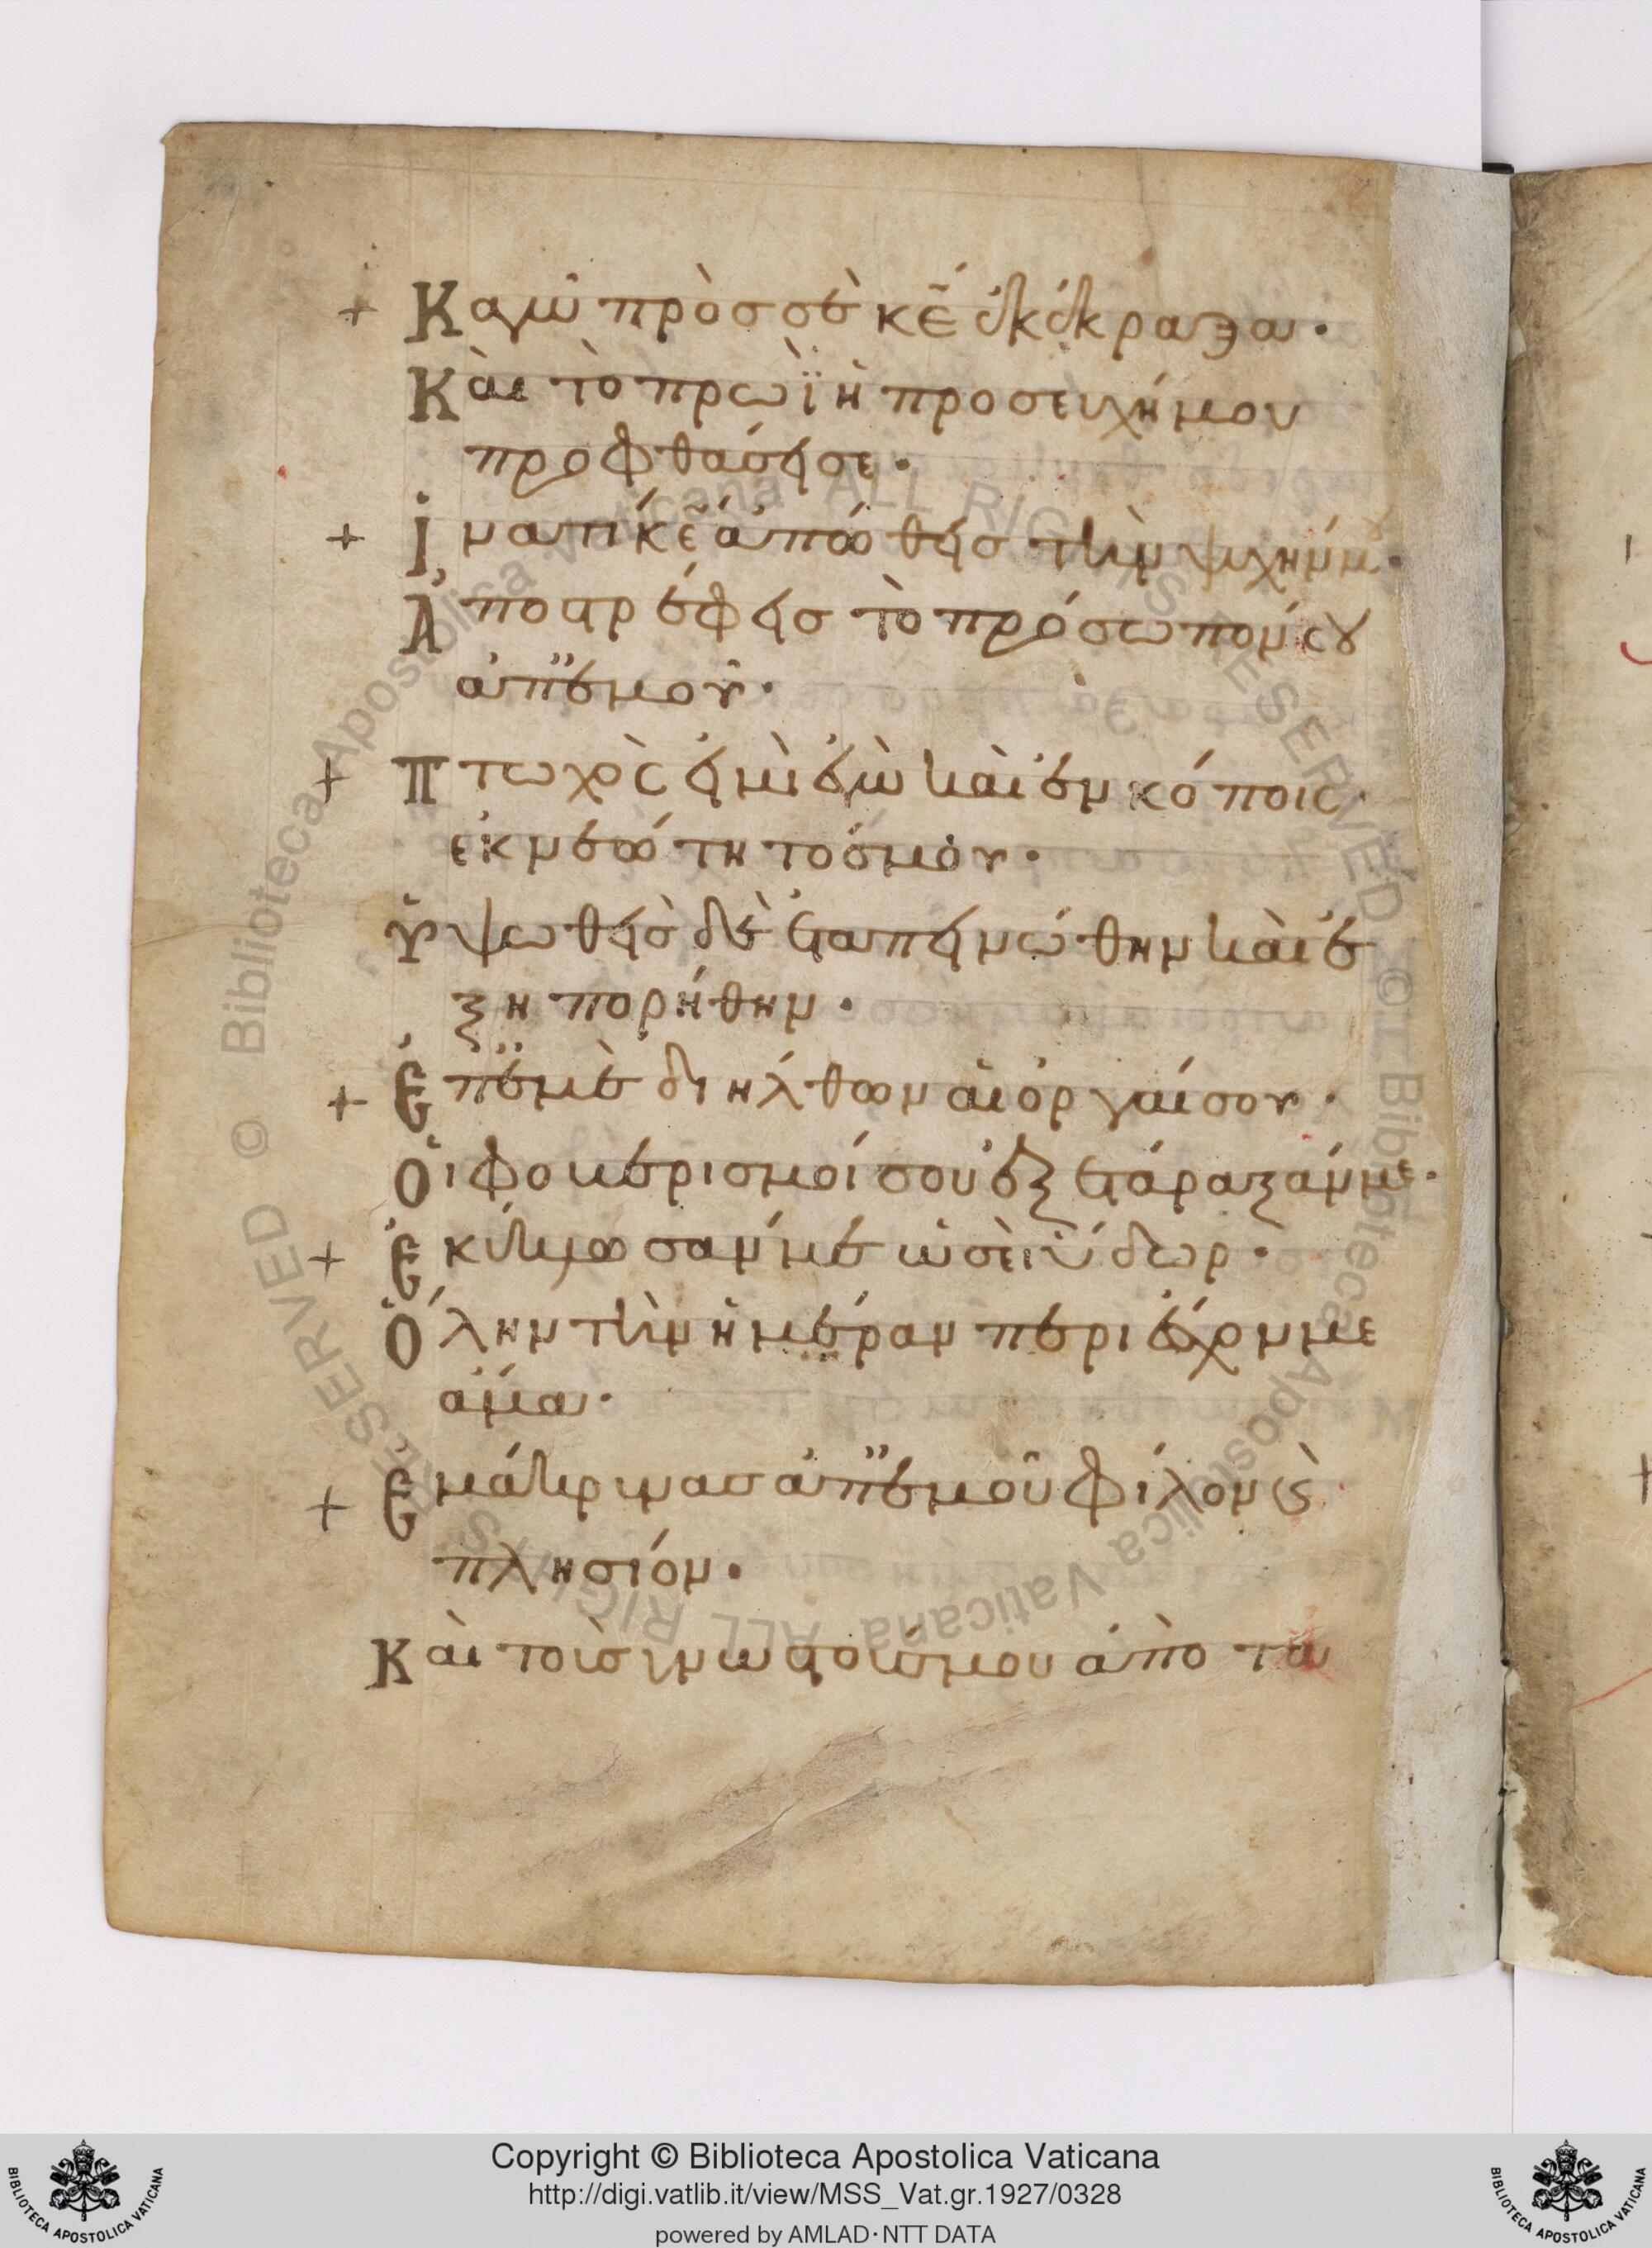 + Καγὼ πρὸσ σὲ κ̅ε̅ ἐκέκραξα·
Καὶ τὸ πρωῒ ἡ προσευχή μου
προφθάσει σε·
+ Ἱνατί κ̅ε̅ ἀπωθεῖσ τὴν ψυχήν μȣ·
Ἀποστρέφεισ τὸ πρόσωπόν σȣ
ἀπ' ἐμοῦ·
+ Πτωχὸς εἰμὶ ἐγὼ καὶ ἐν κόποις
ἐκ νεότητόσ μου·
Ὑψωθεὶσ δὲ ἐταπεινώθην καὶ ἐ
ξηπορήθην·
+ Ἐπ' ἐμὲ διῆλθον αἱ ὀργαί σου·
Οἱ φοβερισμοί σου ἐξετάραξάν με·
+ Ἐκύκλωσάν με ὡσεὶ ὕδωρ·
Ὅλην τὴν ἡμέραν περιέσχον με
ἅμα·
+ Ἐμάκρυνασ ἀπ' ἐμοῦ φίλον ϛ̀
πλησίον·
Καὶ τοὺσ γνωστούσ μου ἀπὸ τα
Copyright © Biblioteca Apostolica Vaticana
http://digi.vatlib.it/view/MSS_Vat.gr.1927/0328
powered by AMLAD·NTT DATA